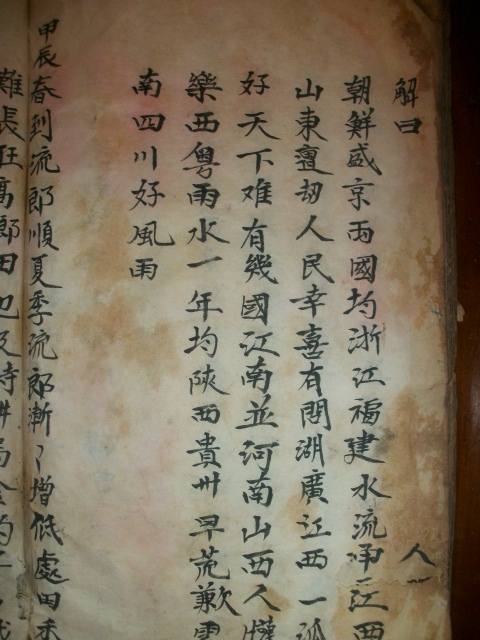 解曰
朝鮮盛京両國均浙江福建水流江西
山東亶刼人民幸喜有湖廣江西一
好天下难有幾國江南並河南山西人
樂西粤雨水一年均陝西貴州早荒歉雲
南四川好風雨
甲辰春到流郎順夏季流郎漸〻增低處田禾
難長旺高郎田也及時耕